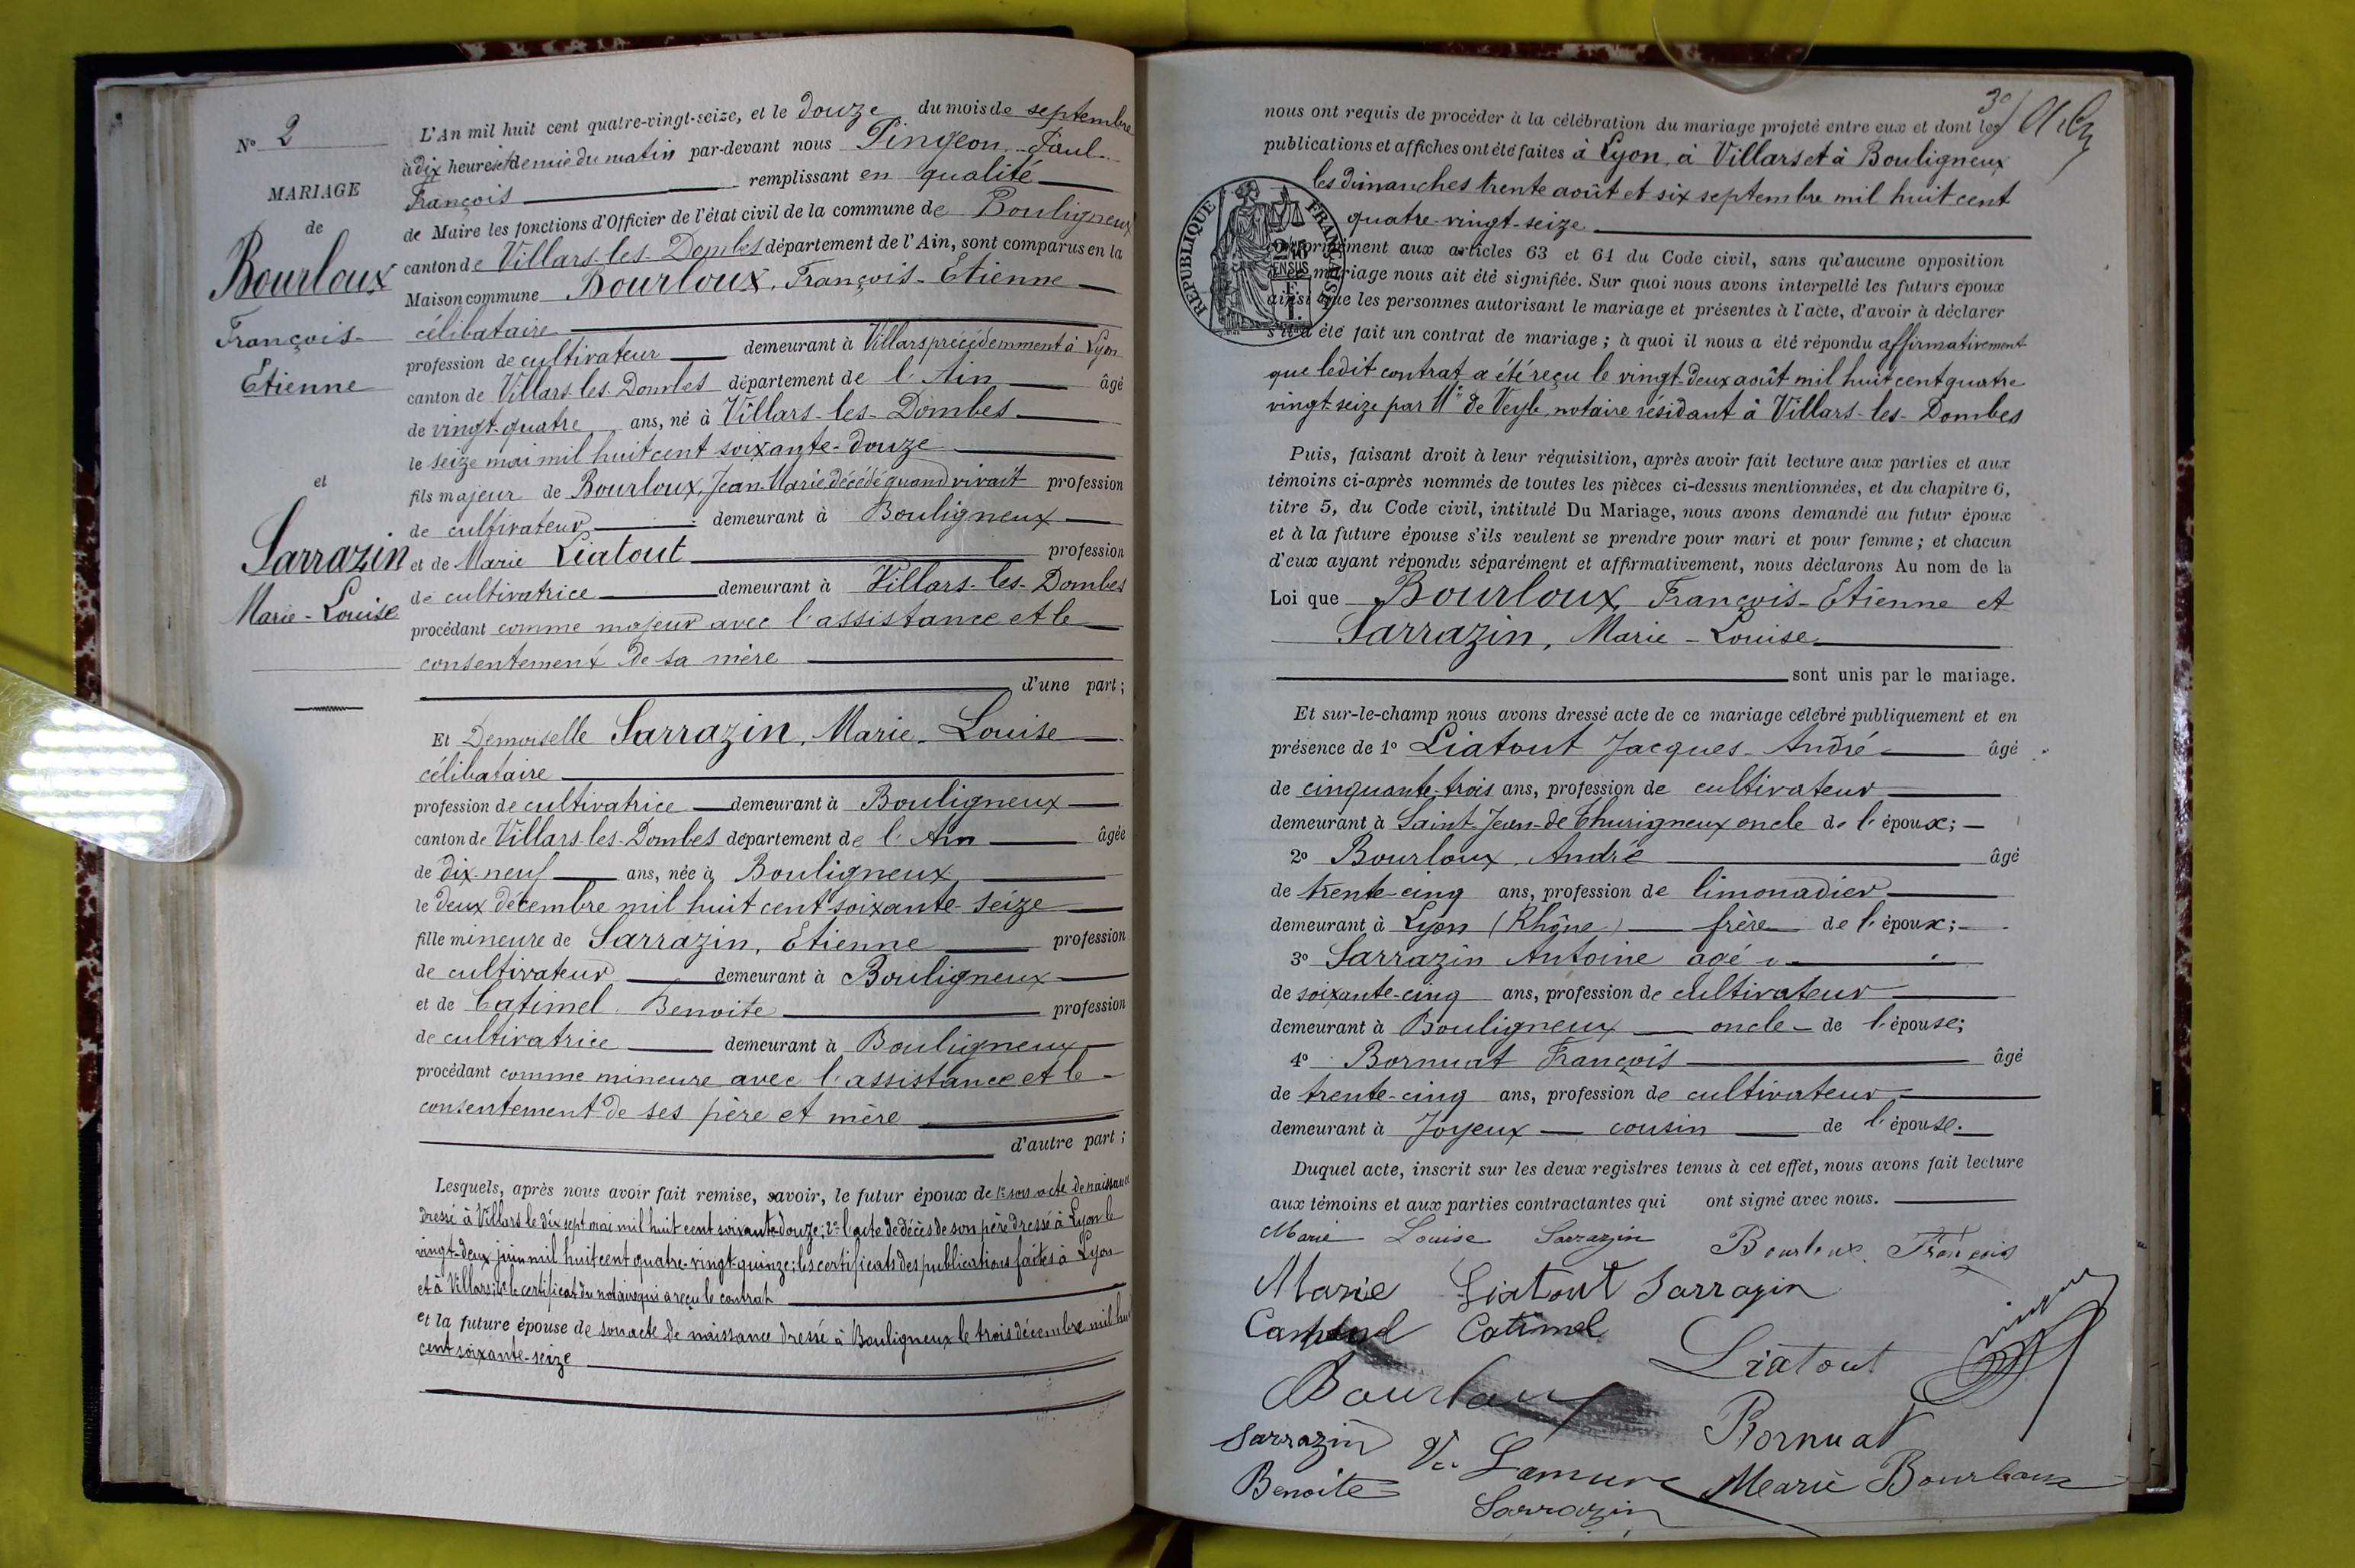 N° 2
MARIAGE
de
Bourloux
François-
Etienne
et
Sarrazin
Marie-Louise
L'An mil huit cent quatre-vingt-seize, et le douze du mois de septembre
à dix heures et demie du matin par-devant nous Pingeon Paul-
François remplissant en qualité
de Maire les fonctions d'Officier de l'état civil de la commune de Bouligneux
canton de Villars-les-Dombes département de l'Ain, sont comparus en la
Maison commune Bourloux, François-Etienne
célibataire
profession de cultivateur demeurant à Villars précédemment à Lyon
canton de Villars-les-Dombes département de l'Ain âgé
de vingt-quatre ans, né à Villars-les-Dombes
le seize mai mil huit cent soixante-douze
fils majeur de Bourloux, Jean-Marie décédé quand vivait profession
de cultivateur demeurant à Bouligneux
et de Marie Liatout profession
de cultivatrice demeurant à Villars-les-Dombes
procédant comme majeur avec l'assistance et le
consentement de sa mère
d'une part;
Et Demoiselle Sarrazin, Marie-Louise
célibataire
profession de cultivatrice demeurant à Bouligneux
canton de Villars-les-Dombes département de l'Ain âgée
de dix-neuf ans, née à Bouligneux
le deux décembre mil huit cent soixante-seize
fille mineure de Sarrazin, Etienne profession
de cultivateur demeurant à Bouligneux
et de Catimel Benoite profession
de cultivatrice demeurant à Bouligneux
procédant comme mineure avec l'assistance et le
consentement de ses père et mère
d'autre part;
Lesquels, après nous avoir fait remise, savoir, le futur époux de 1° son acte de naissance
dressé à Villars le dix sept mai mil huit cent soixante-douze; 2° l'acte de décès de son père dressé à Lyon le
vingt-deux juin mil huit cent quatre-vingt-quinze; les certificats des publications faites à Lyon
et à Villars; 4° le certificat du notaire qui a reçu le contrat
et la future épouse de son acte de naissance dressé à Bouligneux le trois décembre mil huit
cent soixante-seize
nous ont requis de procéder à la célébration du mariage projeté entre eux et dont les
publications et affiches ont été faites à Lyon, à Villars et à Bouligneux
les dimanches trente août et six septembre mil huit cent
quatre-vingt-seize
RÉPUBLIQUE FRANÇAISE
conformément aux articles 63 et 64 du Code civil, sans qu'aucune opposition
mariage nous ait été signifiée. Sur quoi nous avons interpellé les futurs époux
ainsi que les personnes autorisant le mariage et présentes à l'acte, d'avoir à déclarer
s'il a été fait un contrat de mariage; à quoi il nous a été répondu affirmativement
que ledit contrat a été reçu le vingt-deux août mil huit cent quatre
vingt-seize par Me de Veyle notaire résidant à Villars-les-Dombes
Puis, faisant droit à leur réquisition, après avoir fait lecture aux parties et aux
témoins ci-après nommés de toutes les pièces ci-dessus mentionnées, et du chapitre 6,
titre 5, du Code civil, intitulé Du Mariage, nous avons demandé au futur époux
et à la future épouse s'ils veulent se prendre pour mari et pour femme; et chacun
d'eux ayant répondu séparément et affirmativement, nous déclarons Au nom de la
Loi que Bourloux, François-Etienne et
Sarrazin, Marie-Louise
sont unis par le mariage.
Et sur-le-champ nous avons dressé acte de ce mariage célébré publiquement et en
présence de 1° Liatout Jacques-André âgé
de cinquante-trois ans, profession de cultivateur
demeurant à Saint-Jean-de Thurigneux oncle de l'époux;
2° Bourloux André âgé
de trente-cinq ans, profession de limonadier
demeurant à Lyon (Rhône) frère de l'époux;
3° Sarrazin Antoine âgé
de soixante-cinq ans, profession de cultivateur
demeurant à Bouligneux oncle de l'épouse;
4° Bornuat François âgé
de trente-cinq ans, profession de cultivateur
demeurant à Joyeux cousin de l'épouse.
Duquel acte, inscrit sur les deux registres tenus à cet effet, nous avons fait lecture
aux témoins et aux parties contractantes qui ont signé avec nous.
Marie Louise Sarrazin Bourloux François
Marie Liatout Sarrazin
Catimel
Liatout
Bourloux
Bornuat
Sarrazin Ve Lamure Marie Bourloux
Benoite
Sarrazin